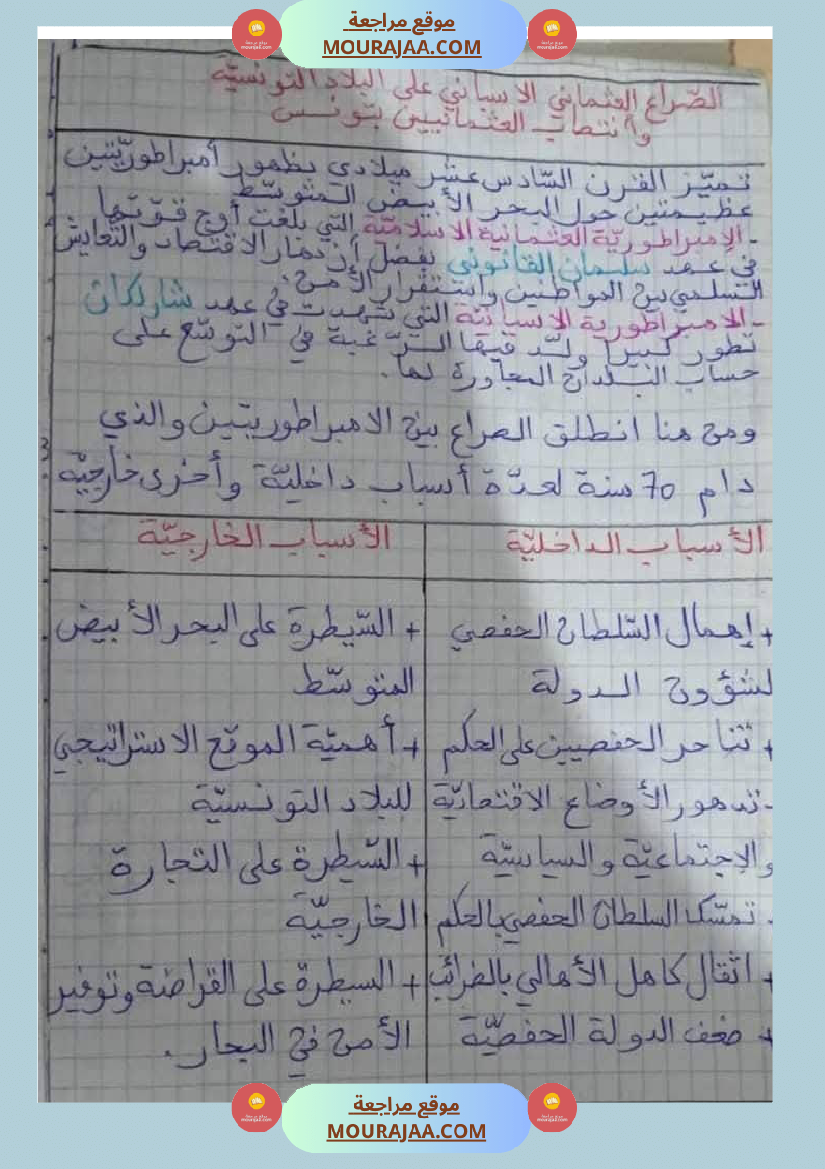 موقع مراجعة
MOURAJAA.COM
الصّراع العثماني الاسباني على البلاد التونسيّة
وانتصاب العثمانيين بتونس
تميّز القرن السّادس عشر ميلادي بظهور أمبراطوريّتين
عظيمتين حول البحر الأبيض المتوسّط
- الإمبراطوريّة العثمانية الاسلاميّة التي بلغت أوج قوّتها
في عهد سليمان القانوني بفضل ازدهار الاقتصاد والتّعايش
السلمي بين المواطنين واستقرار الأمن.
- الامبراطورية الاسبانيّة التي شهدت في عهد شارلكان
تطور كبيرا ولّد فيها الرّغبة في التوسّع على
حساب البلدان المجاورة لها.
ومن هنا انطلق الصراع بين الامبراطوريتين والذي
دام 70 سنة لعدّة أسباب داخليّة وأخرى خارجيّة
الأسباب الداخليّة
+ إهمال السّلطان الحفصي
لشؤون الدولة
+ تناحر الحفصيين على الحكم
- تدهور الأوضاع الاقتصاديّة
والاجتماعيّة والسياسيّة
- تمسّك السلطان الحفصي بالحكم
+ اثقال كاهل الأهالي بالضرائب
+ ضعف الدولة الحفصيّة
الأسباب الخارجيّة
+ السّيطرة على البحر الأبيض
المتوسّط
+ أهميّة الموقع الاستراتيجي
للبلاد التونسيّة
+ السّيطرة على التجارة
الخارجيّة
+ السيطرة على القراصنة وتوفير
الأمن في البحار.
موقع مراجعة
MOURAJAA.COM